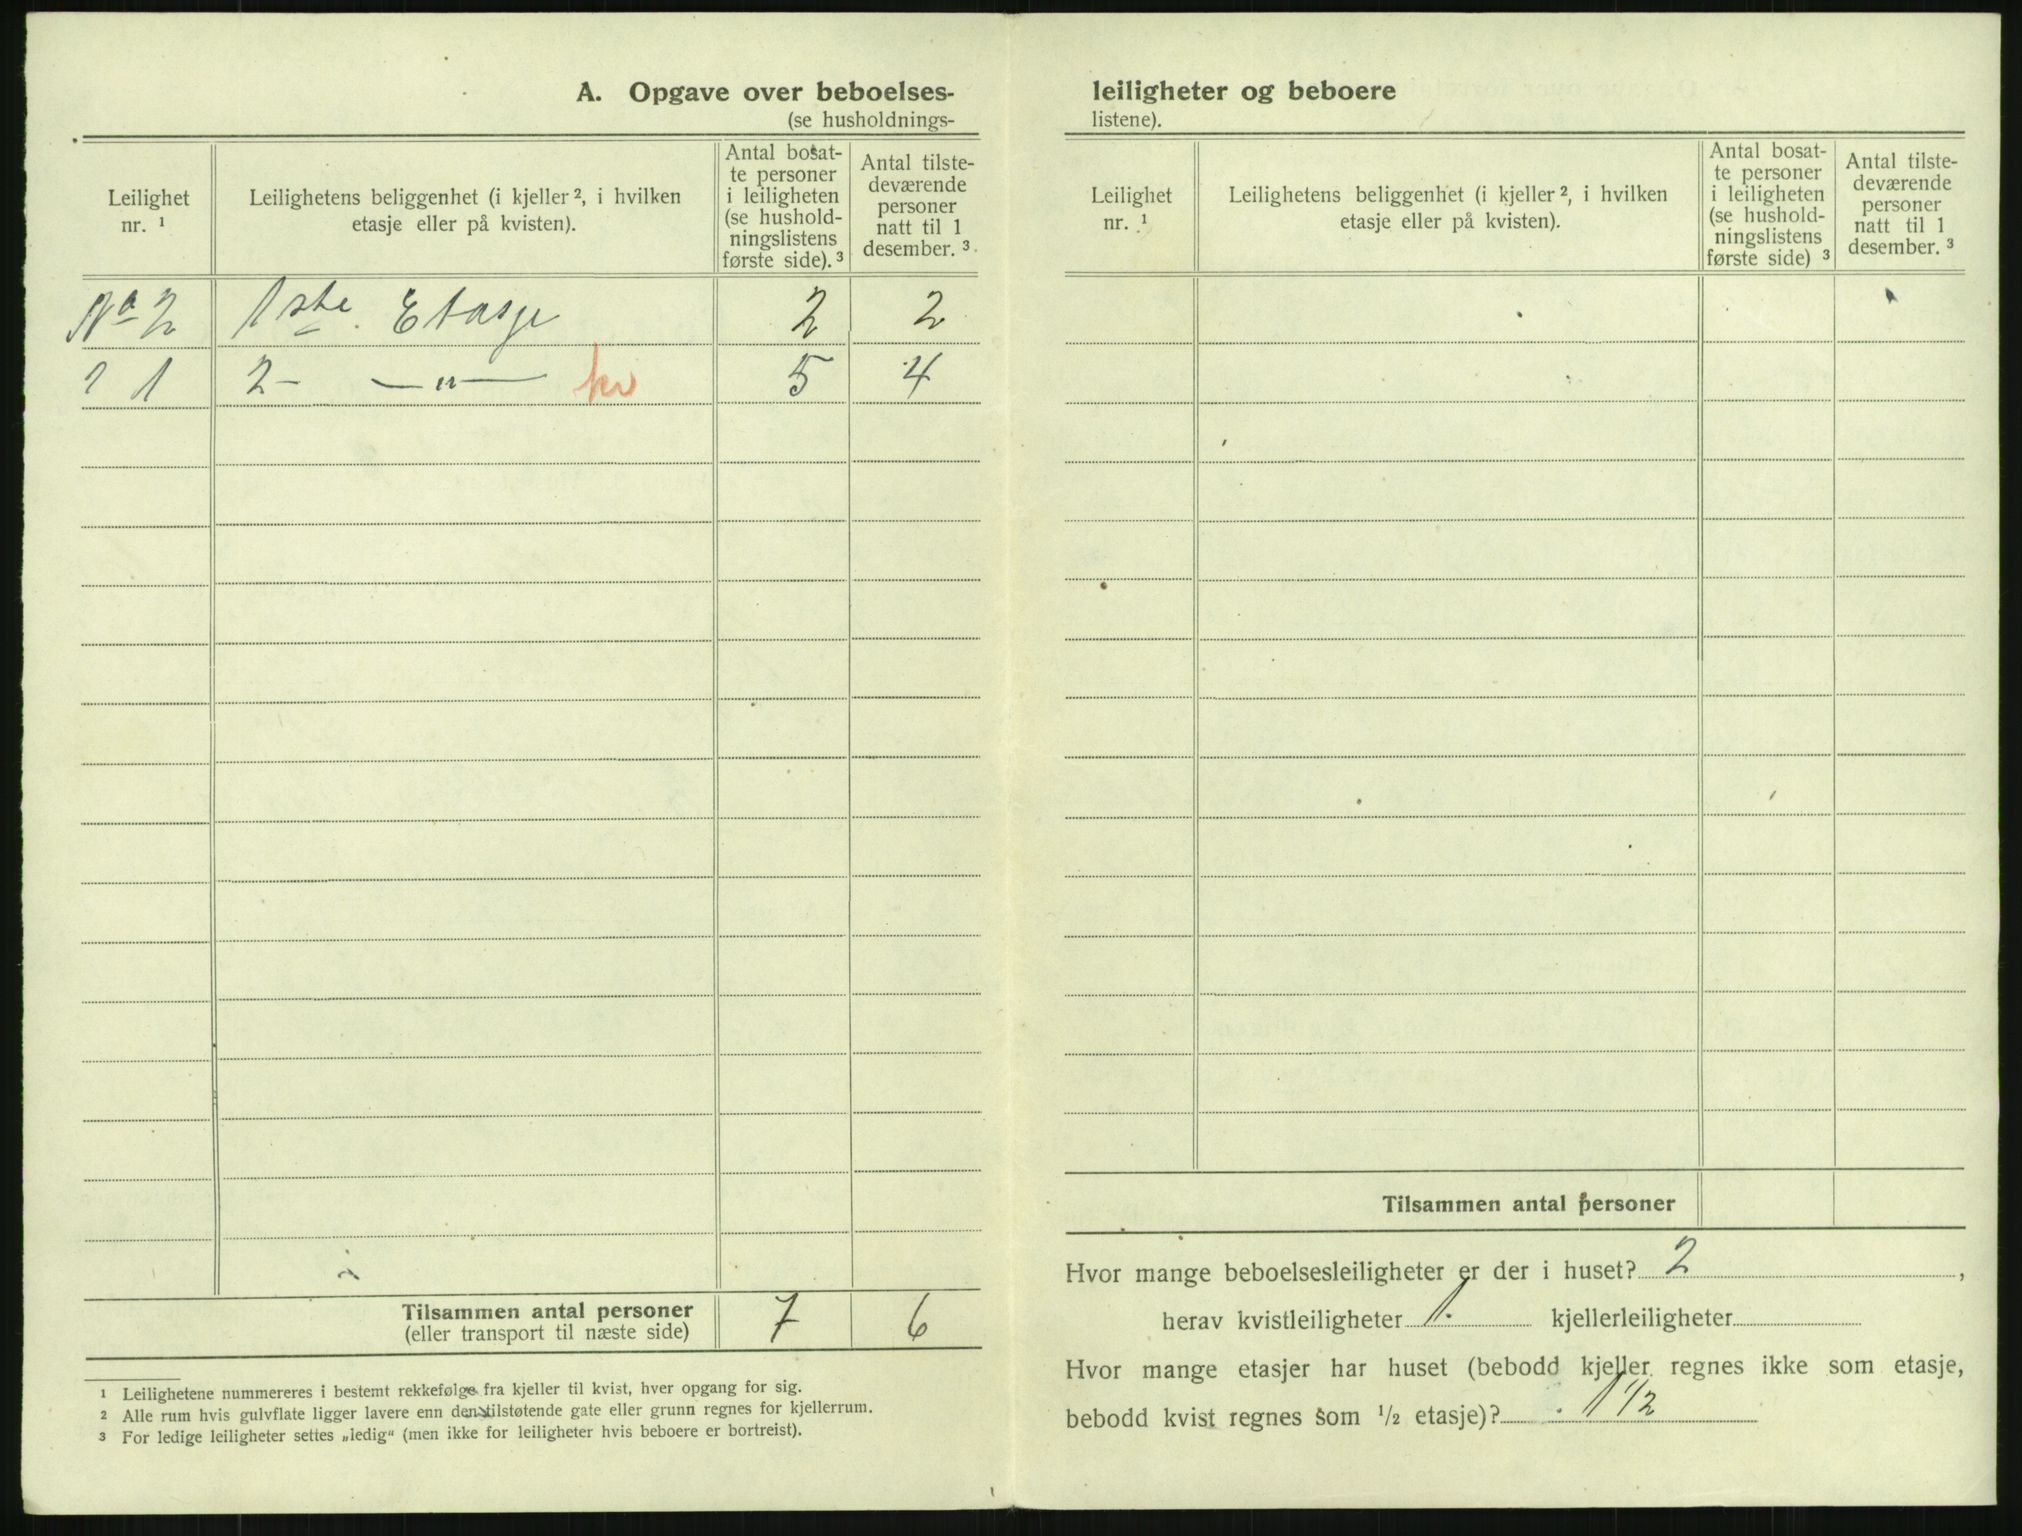 A. Opgave over beboelses-
(se husholdnings-
Leilighet nr. ¹
Leilighetens beliggenhet (i kjeller ², i hvilken etasje eller på kvisten).
Antal bosat-
te personer
i leiligheten
(se hushold-
ningslistens
første side). ³
Antal tilste-
deværende
personer
natt til 1
desember. ³
No 2 1ste Etasje 2 2
" 1 2- —"— kv 5 4
Tilsammen antal personer 7 6
(eller transport til næste side)
¹ Leilighetene nummereres i bestemt rekkefølge fra kjeller til kvist, hver opgang for sig.
² Alle rum hvis gulvflate ligger lavere enn den tilstøtende gate eller grunn regnes for kjellerrum.
³ For ledige leiligheter settes „ledig“ (men ikke for leiligheter hvis beboere er bortreist).
leiligheter og beboere
listene).
Leilighet nr. ¹
Leilighetens beliggenhet (i kjeller ², i hvilken etasje eller på kvisten).
Antal bosat-
te personer
i leiligheten
(se hushold-
ningslistens
første side) ³
Antal tilste-
deværende
personer
natt til 1
desember. ³
Tilsammen antal personer
Hvor mange beboelsesleiligheter er der i huset? 2 ,
herav kvistleiligheter 1. kjellerleiligheter
Hvor mange etasjer har huset (bebodd kjeller regnes ikke som etasje,
bebodd kvist regnes som ½ etasje)? 1 ½